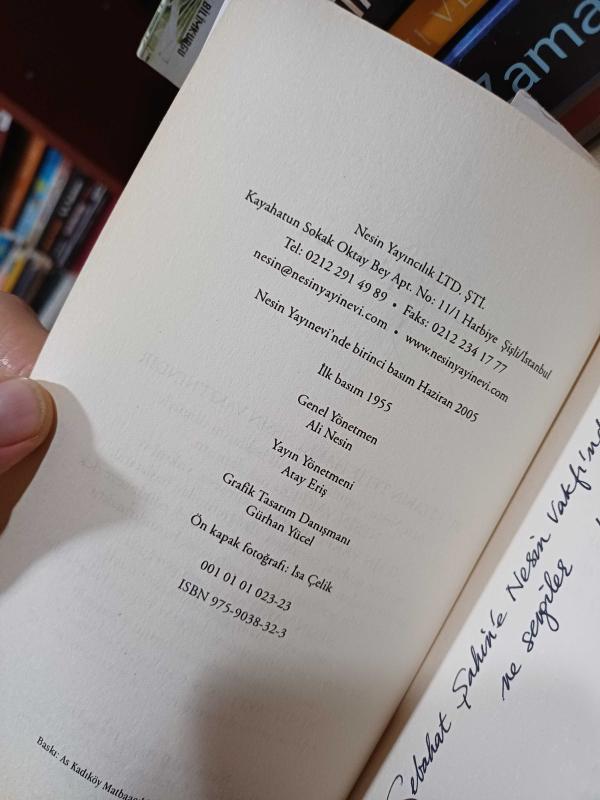 BİLİMKURGU
Zama
Nesin Yayıncılık LTD. ŞTİ.
Kayahatun Sokak Oktay Bey Apt. No: 11/1 Harbiye Şişli/İstanbul
Tel: 0212 291 49 89 • Faks: 0212 234 17 77
nesin@nesinyayinevi.com • www.nesinyayinevi.com
Nesin Yayınevi'nde birinci basım Haziran 2005
İlk basım 1955
Genel Yönetmen
Ali Nesin
Yayın Yönetmeni
Atay Eriş
Grafik Tasarım Danışmanı
Gürhan Yücel
Ön kapak fotoğrafı: İsa Çelik
001 01 01 023-23
ISBN 975-9038-32-3
Baskı: As Kadıköy
Sebahat Şahin'e Nesin vakfı'nd
ne sevgiler